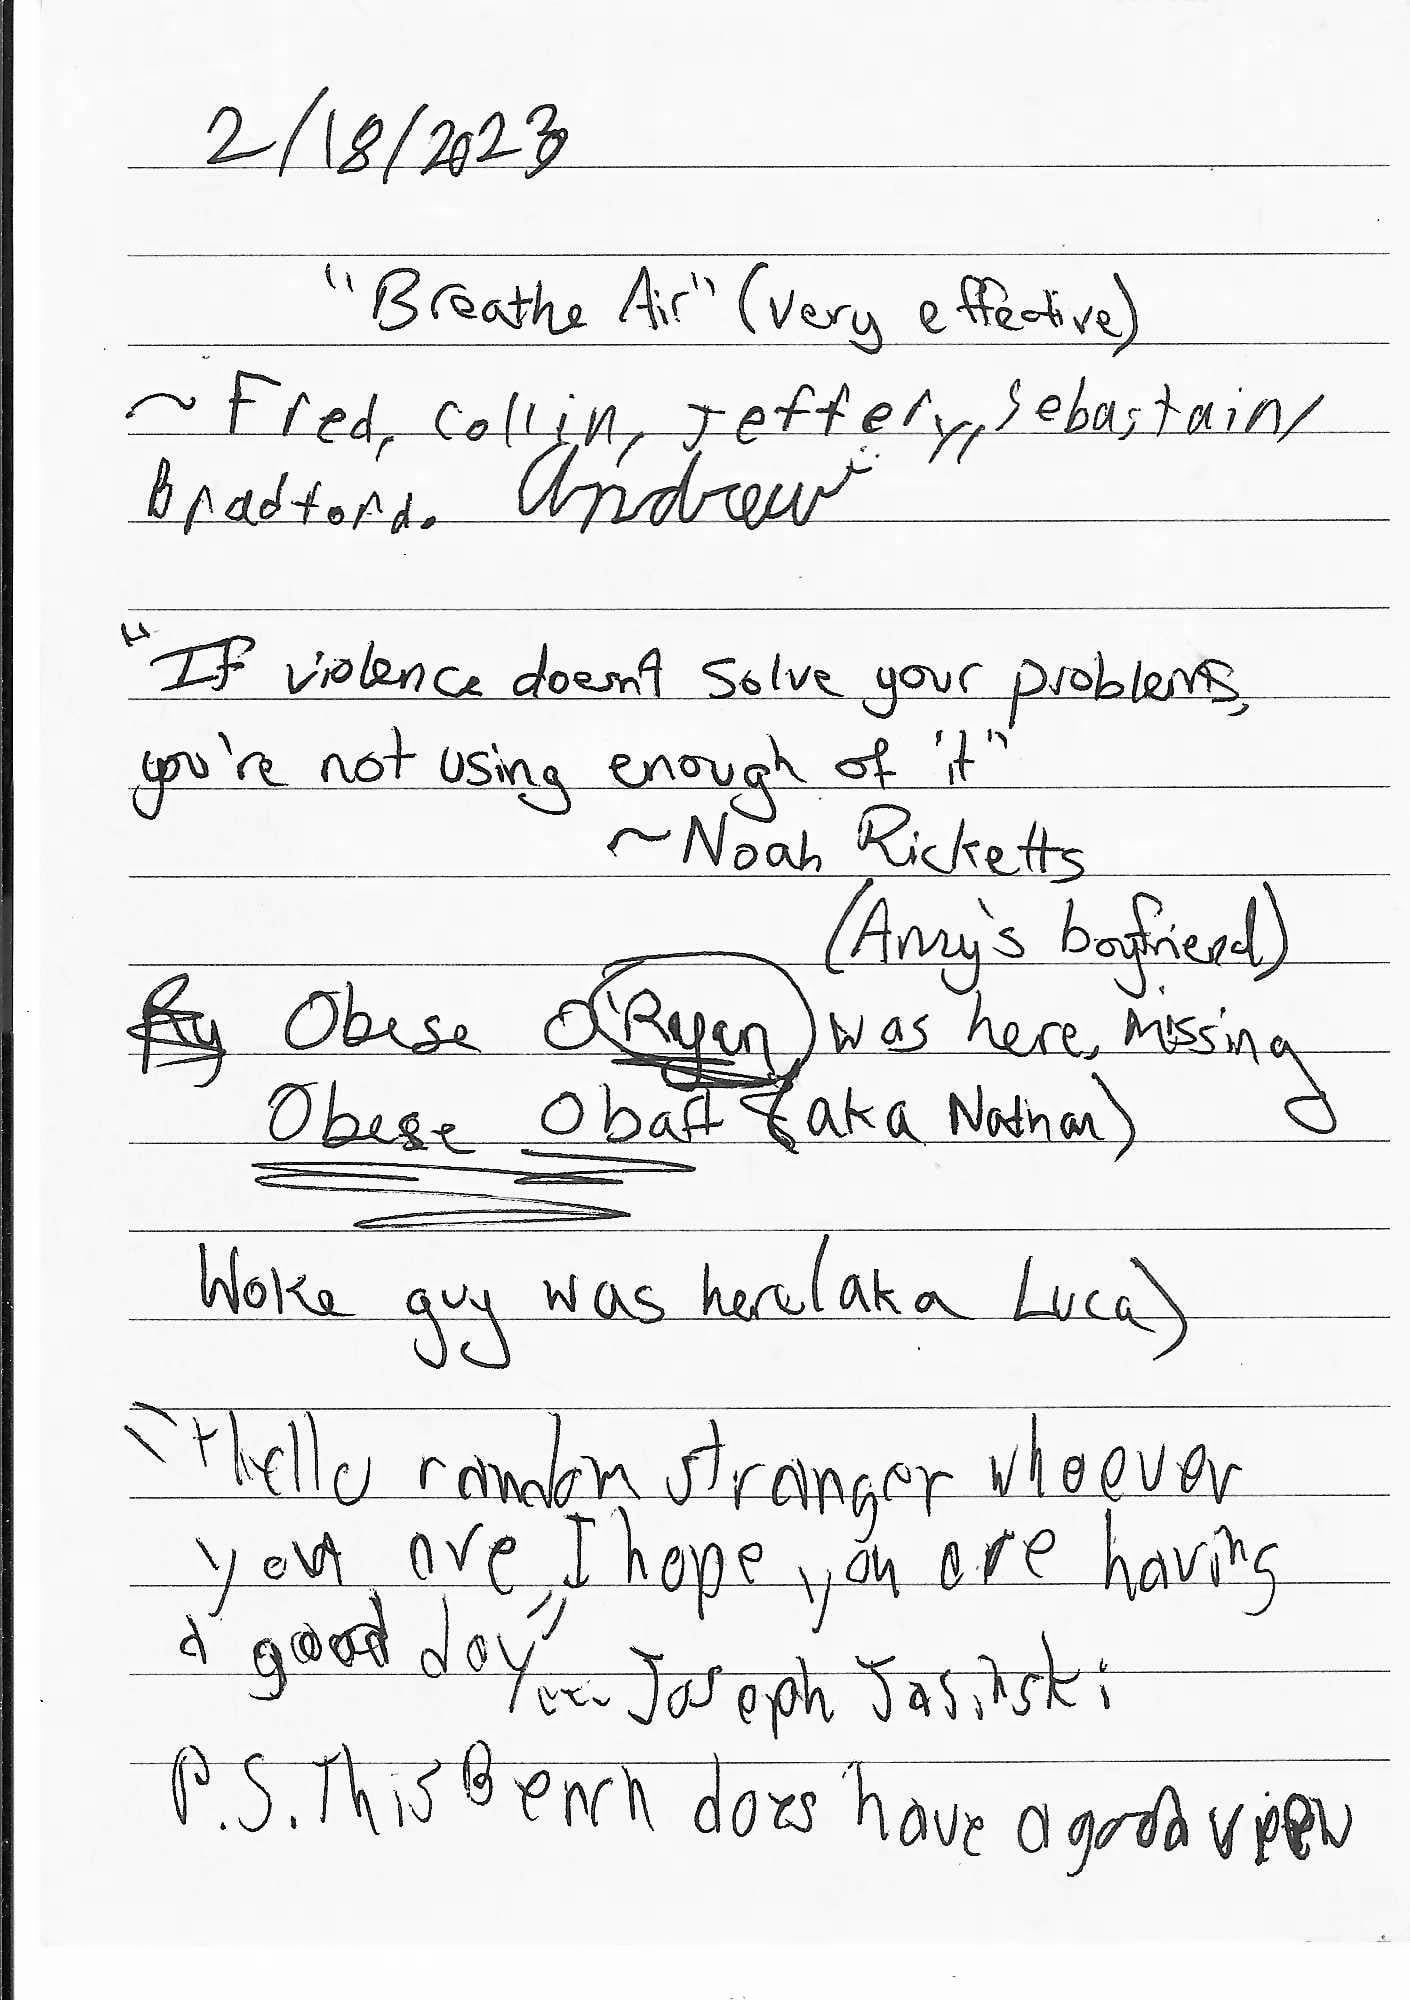 2/18/2023
"Breathe Air" (very effective)
~ Fred, Collin, Jeffery, Sebastain,
Bradford. Andrew
"If violence doesn't solve your problems,
you're not using enough of it"
~Noah Ricketts
(Amy's boyfriend)
Ry Obese O'Ryan was here, missing
Obese Obaft (aka Nathan)
Woke guy was here (aka Luca)
"Hello random stranger whoever
you are, I hope you are having
a good day" --- Joseph Jasinski
P.S. This Bench does have a good view